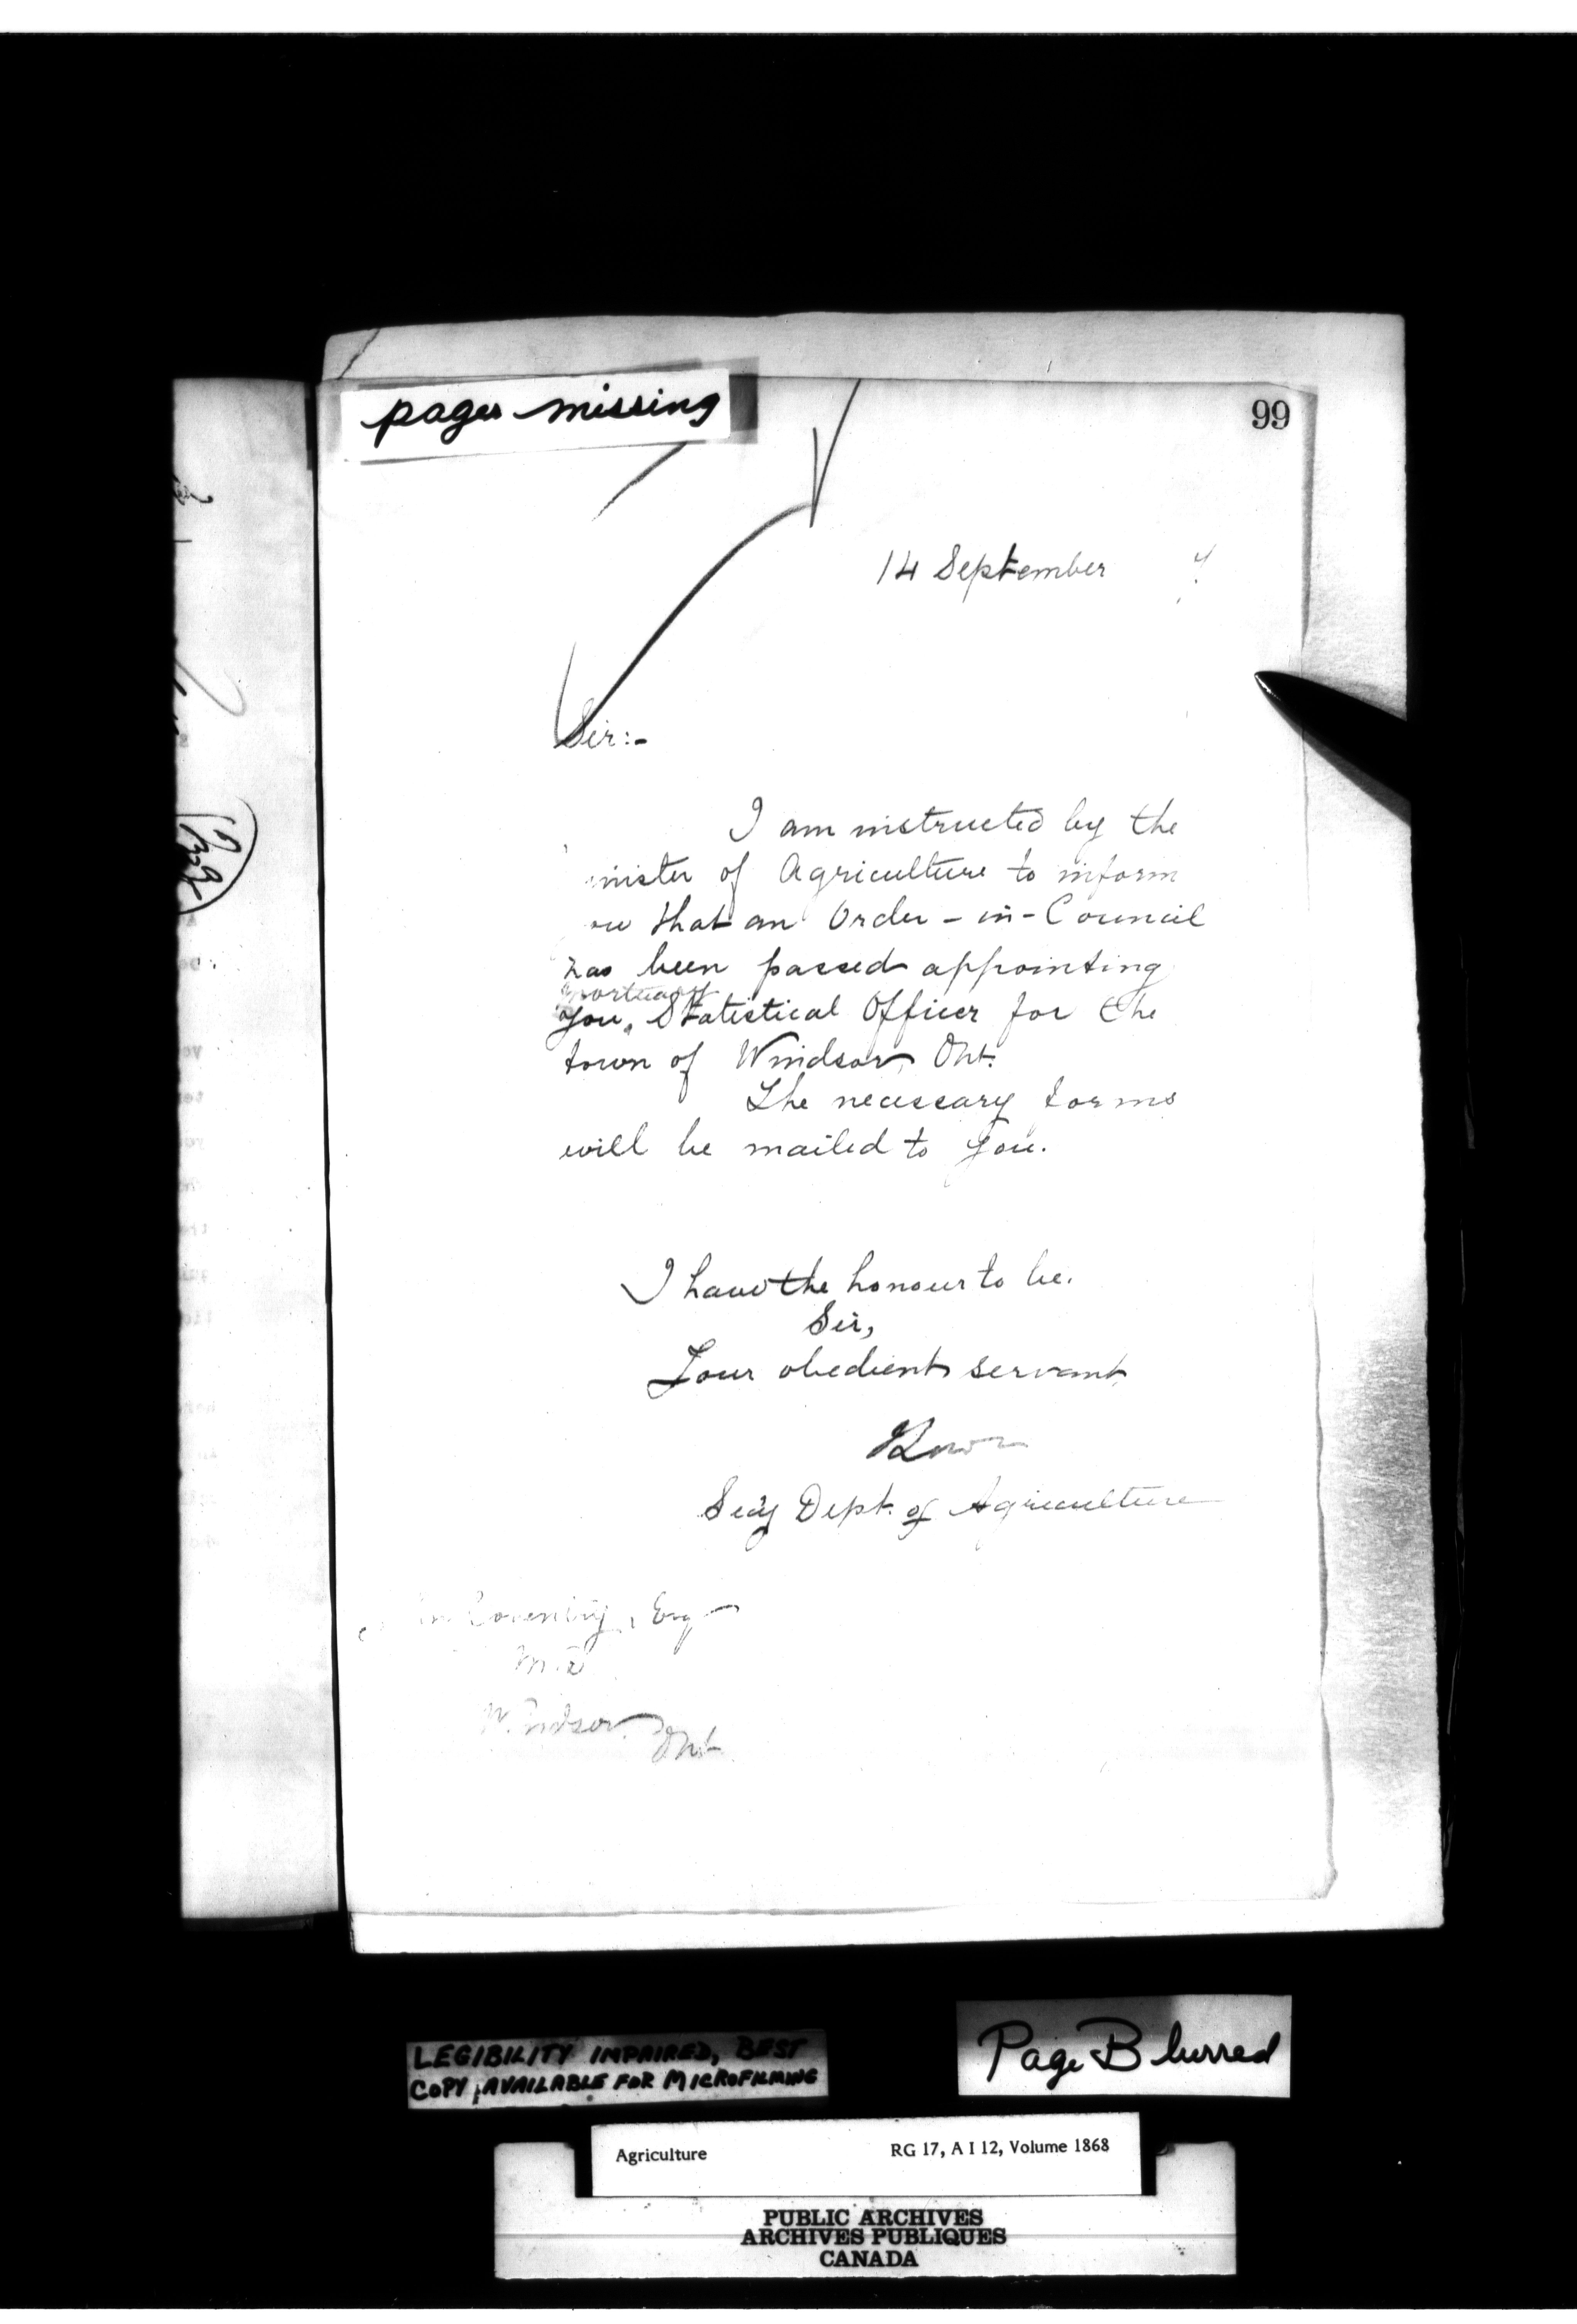 pages missing
99
14 September
Sir:-
I am instructed by the
inister of Agriculture to inform
ou that an Order-in-Council
has been passed appointing
mortuary
you, Statistical Officer for the
town of Windsor, Ont.
The necessary forms
will be mailed to you.
I have the honour to be.
Sir,
Your obedient servant
Secy Dept. of Agriculture
Coventry, Esq
Windsor. Ont
LEGIBILITY IMPAIRED, BEST
COPY AVAILABLE FOR MICROFILMING
Page Blurred
Agriculture RG 17, A I 12, Volume 1868
PUBLIC ARCHIVES
ARCHIVES PUBLIQUES
CANADA